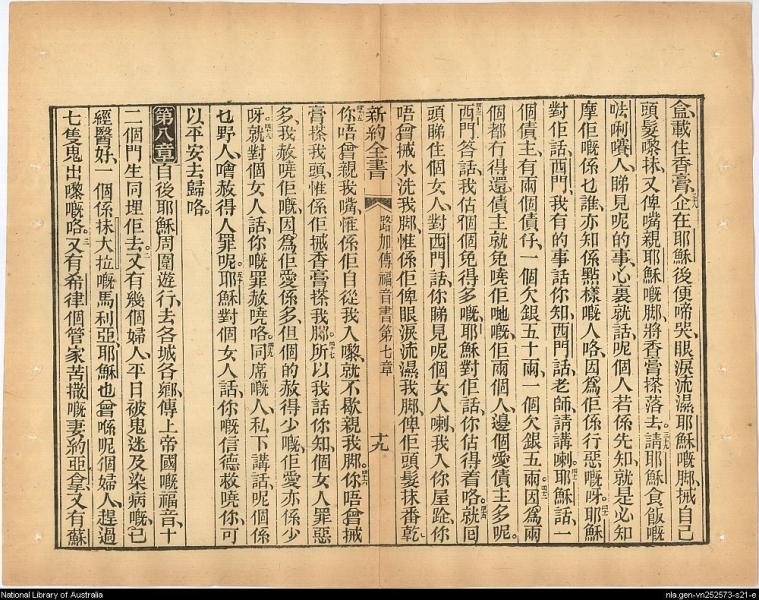 盒、載住香膏、企在耶穌後便、啼哭、眼淚流濕耶穌嘅脚、揻自己
頭髮嚟抹、又俾嘴親耶穌嘅脚、將香膏搽落去。請耶穌食飯嘅
㗎唎𡃁人、睇見呢的事、心裏就話、呢個人若係先知、就是必知
摩佢嘅係乜誰、亦知係點樣嘅人咯、因爲佢係行惡嘅呀。耶穌
對佢話、西門、我有的事話你知、西門話、老師、請講喇、耶穌話、一
個債主、有兩個債仔、一個欠銀五十兩、一個欠銀五兩。因爲兩
個都冇得還、債主就免曉佢哋嘅、佢兩個人、邊個愛債主多呢。
西門答話、我估個個免得多嘅、耶穌對佢話、你估得着咯。就囘
頭睇住個女人、對西門話、你睇見呢個女人喇、我入你屋跎、你
唔曾揻水洗我脚、惟係佢俾眼淚流濕我脚、俾佢頭髮抹番乾。
新約全書
路加傳福音書第七章
十九
你唔曾親我嘴、惟係佢自從我入嚟、就不歇親我脚。你唔曾揻
膏搽我頭、惟係佢揻香膏搽我脚。所以我話你知、個女人罪惡
多、我赦曉佢嘅、因爲佢愛係多、但個的赦得少嘅、佢愛亦係少
呀。就對個女人話、你嘅罪赦曉咯。同席嘅人、私下講話、呢個係
乜野人、噲赦得人罪呢。耶穌對個女人話、你嘅信德救曉你、可
以平安去歸咯。
第八章 自後耶穌周圍遊行、去各城各鄕、傳上帝國嘅福音、十
二個門生同埋佢去。又有幾個婦人、平日破鬼迷、及染病嘅、已
經醫好、一個係抹大拉嘅馬利亞、耶穌也曾喺呢個婦人、趕過
七隻鬼出嚟嘅咯。又有希律個管家苦撒嘅妻約亞拿、又有蘇
National Library of Australia
nla.gen-vn252573-s21-e